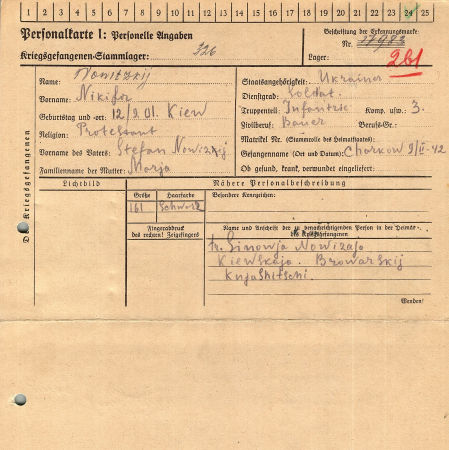 1 2 3 4 5 6 7 8 9 10 11 12 13 14 15 16 17 18 19 20 21 22 23 24 25
Personalkarte I: Personelle Angaben
Beschriftung der Erkennungsmarke:
Kriegsgefangenen-Stammlager: 326
Nr. 
Lager: 261
Name: Nowitzkij
Staatsangehörigkeit: Ukrainer
Vorname: Nikifor
Dienstgrad: Soldat.
Geburtstag und -ort: 12/2.01. Kiew
Truppenteil: Infantrie Komp. usw.: 3.
Religion: Protestant
Zivilberuf: Bauer Berufs-Gr.:
Vorname des Vaters: Stefan Nowizkij
Matrikel Nr. (Stammrolle des Heimatstaates):
Gefangennahme (Ort und Datum): Charkow 9/II-42
Familienname der Mutter: Marja
Ob gesund, krank, verwundet eingeliefert:
Des Kriegsgefangenen
Lichtbild
Nähere Personalbeschreibung
Größe
Haarfarbe
Besondere Kennzeichen:
161
Schwarz
Fingerabdruck
des rechten! Zeigefingers
Name und Anschrift der zu benachrichtigenden Person in der Heimat
des Kriegsgefangenen
fr. Simowja Nowizaja
Kiewskaja. Browarskij
Knjashitschi.
Wenden!